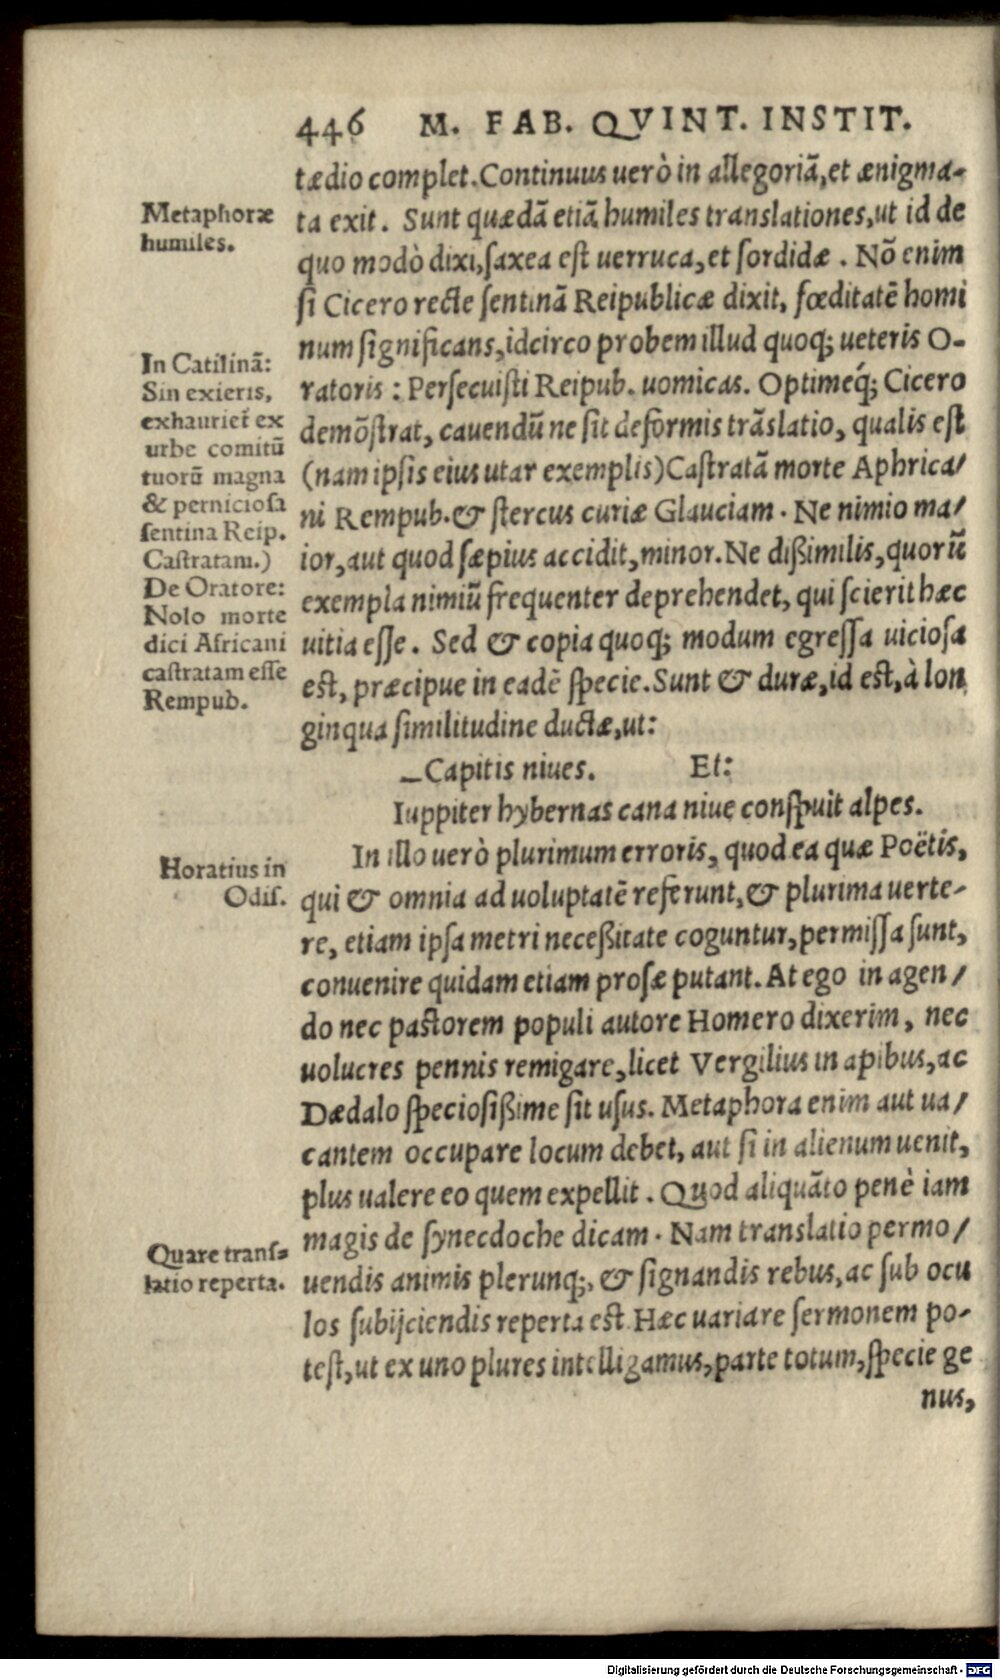 446 M. FAB. QVINT. INSTIT.
tædio complet. Continuus uerò in allegoriã, et ænigma-
ta exit. Sunt quædã etiã humiles translationes, ut id de
quo modò dixi, saxea est uerruca, et sordidæ. Nõ enim
si Cicero recte sentinã Reipublicæ dixit, fœditatẽ homi
num significans, idcirco probem illud quoq; ueteris O-
ratoris: Persecuisti Reipub. uomicas. Optimeq́; Cicero
demõstrat, cauendũ ne sit deformis trãslatio, qualis est
(nam ipsis eius utar exemplis) Castratã morte Aphrica/
ni Rempub. & stercus curiæ Glauciam. Ne nimio ma/
ior, aut quod sæpius accidit, minor. Ne dißimilis, quorũ
exempla nimiũ frequenter deprehendet, qui scierit hæc
uitia esse. Sed & copia quoq; modum egressa uiciosa
est, præcipue in eadẽ specie. Sunt & duræ, id est, à lon
ginqua similitudine ductæ, ut:
_Capitis niues. Et:
Iuppiter hybernas cana niue conspuit alpes.
In illo uerò plurimum erroris, quod ea quæ Poëtis,
qui & omnia ad uoluptatẽ referunt, & plurima uerte-
re, etiam ipsa metri neceßitate coguntur, permissa sunt,
conuenire quidam etiam prosæ putant. At ego in agen/
do nec pastorem populi autore Homero dixerim, nec
uolucres pennis remigare, licet Vergilius in apibus, ac
Dædalo speciosißime sit usus. Metaphora enim aut ua/
cantem occupare locum debet, aut si in alienum uenit,
plus ualere eo quem expellit. Quod aliquãto penè iam
magis de synecdoche dicam. Nam translatio permo/
uendis animis plerunq;, & signandis rebus, ac sub ocu
los subijciendis reperta est. Hæc uariare sermonem po-
test, ut ex uno plures intelligamus, parte totum, specie ge
nus,
Metaphoræ
humiles.
In Catilinã:
Sin exieris,
exhauriet̃ ex
urbe comitũ
tuorũ magna
& perniciosa
sentina Reip.
Castratam.)
De Oratore:
Nolo morte
dici Africani
castratam esse
Rempub.
Horatius in
Odis.
Quare trans-
latio reperta.
Digitalisierung gefördert durch die Deutsche Forschungsgemeinschaft - DFG